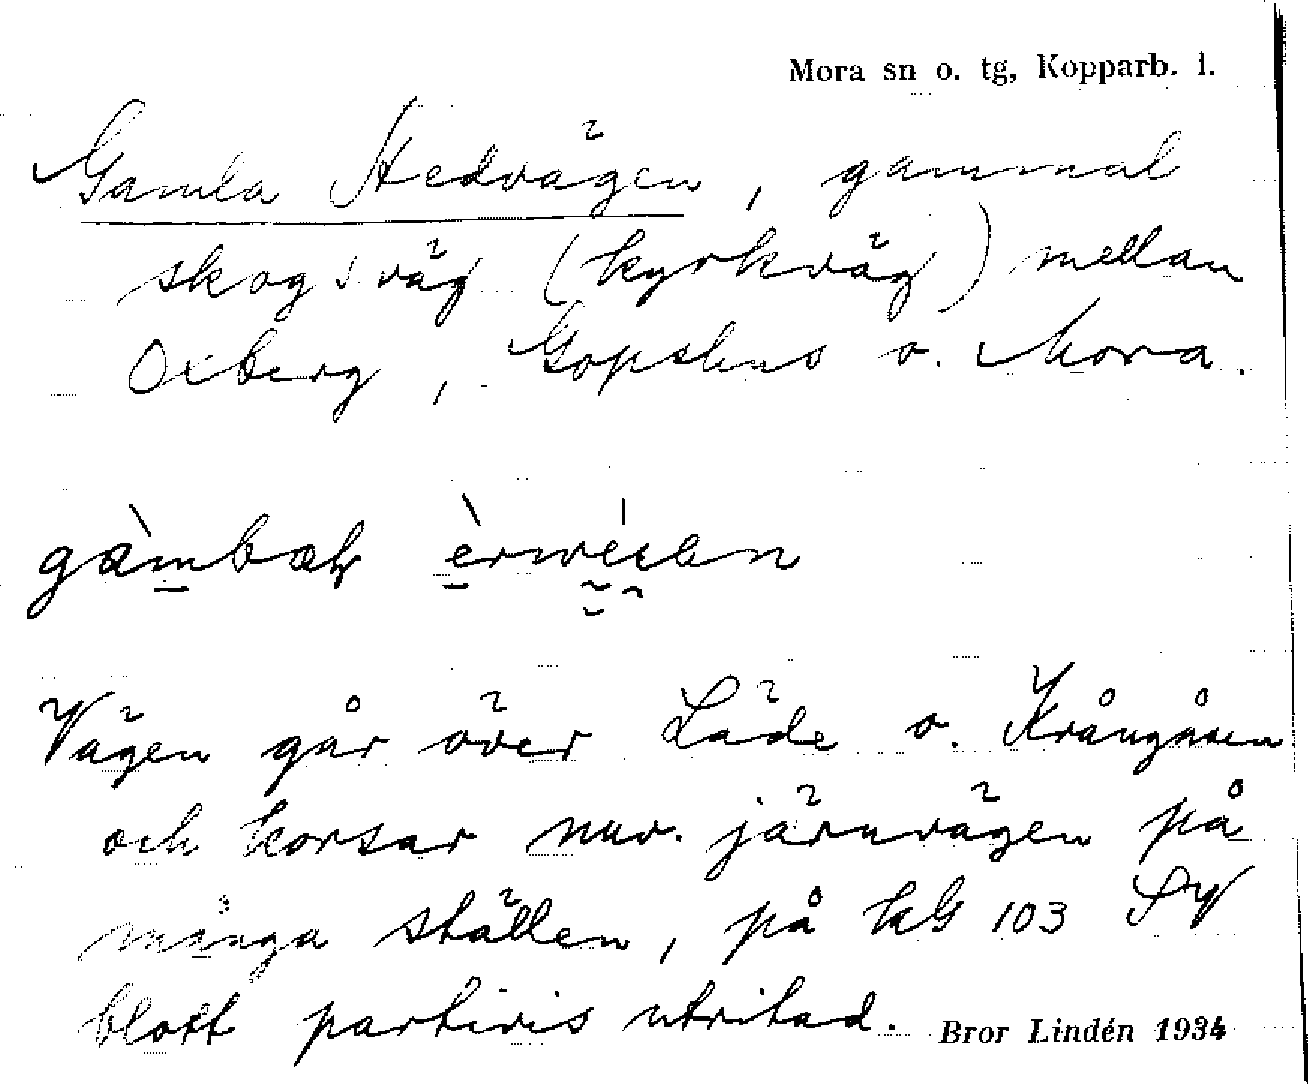 Mora sn o. tg, Kopparb. l.
Gamla Hedvägen, gammal
skogsväg (kyrkväg) mellan
Oxberg, Gopshus o. Mora.
Vägen går över Läde o. Krångåsen
och korsar nuv. järnvägen på
många ställen, på kG 103 SV
blott partivis utritad.
Bror Lindén 1934